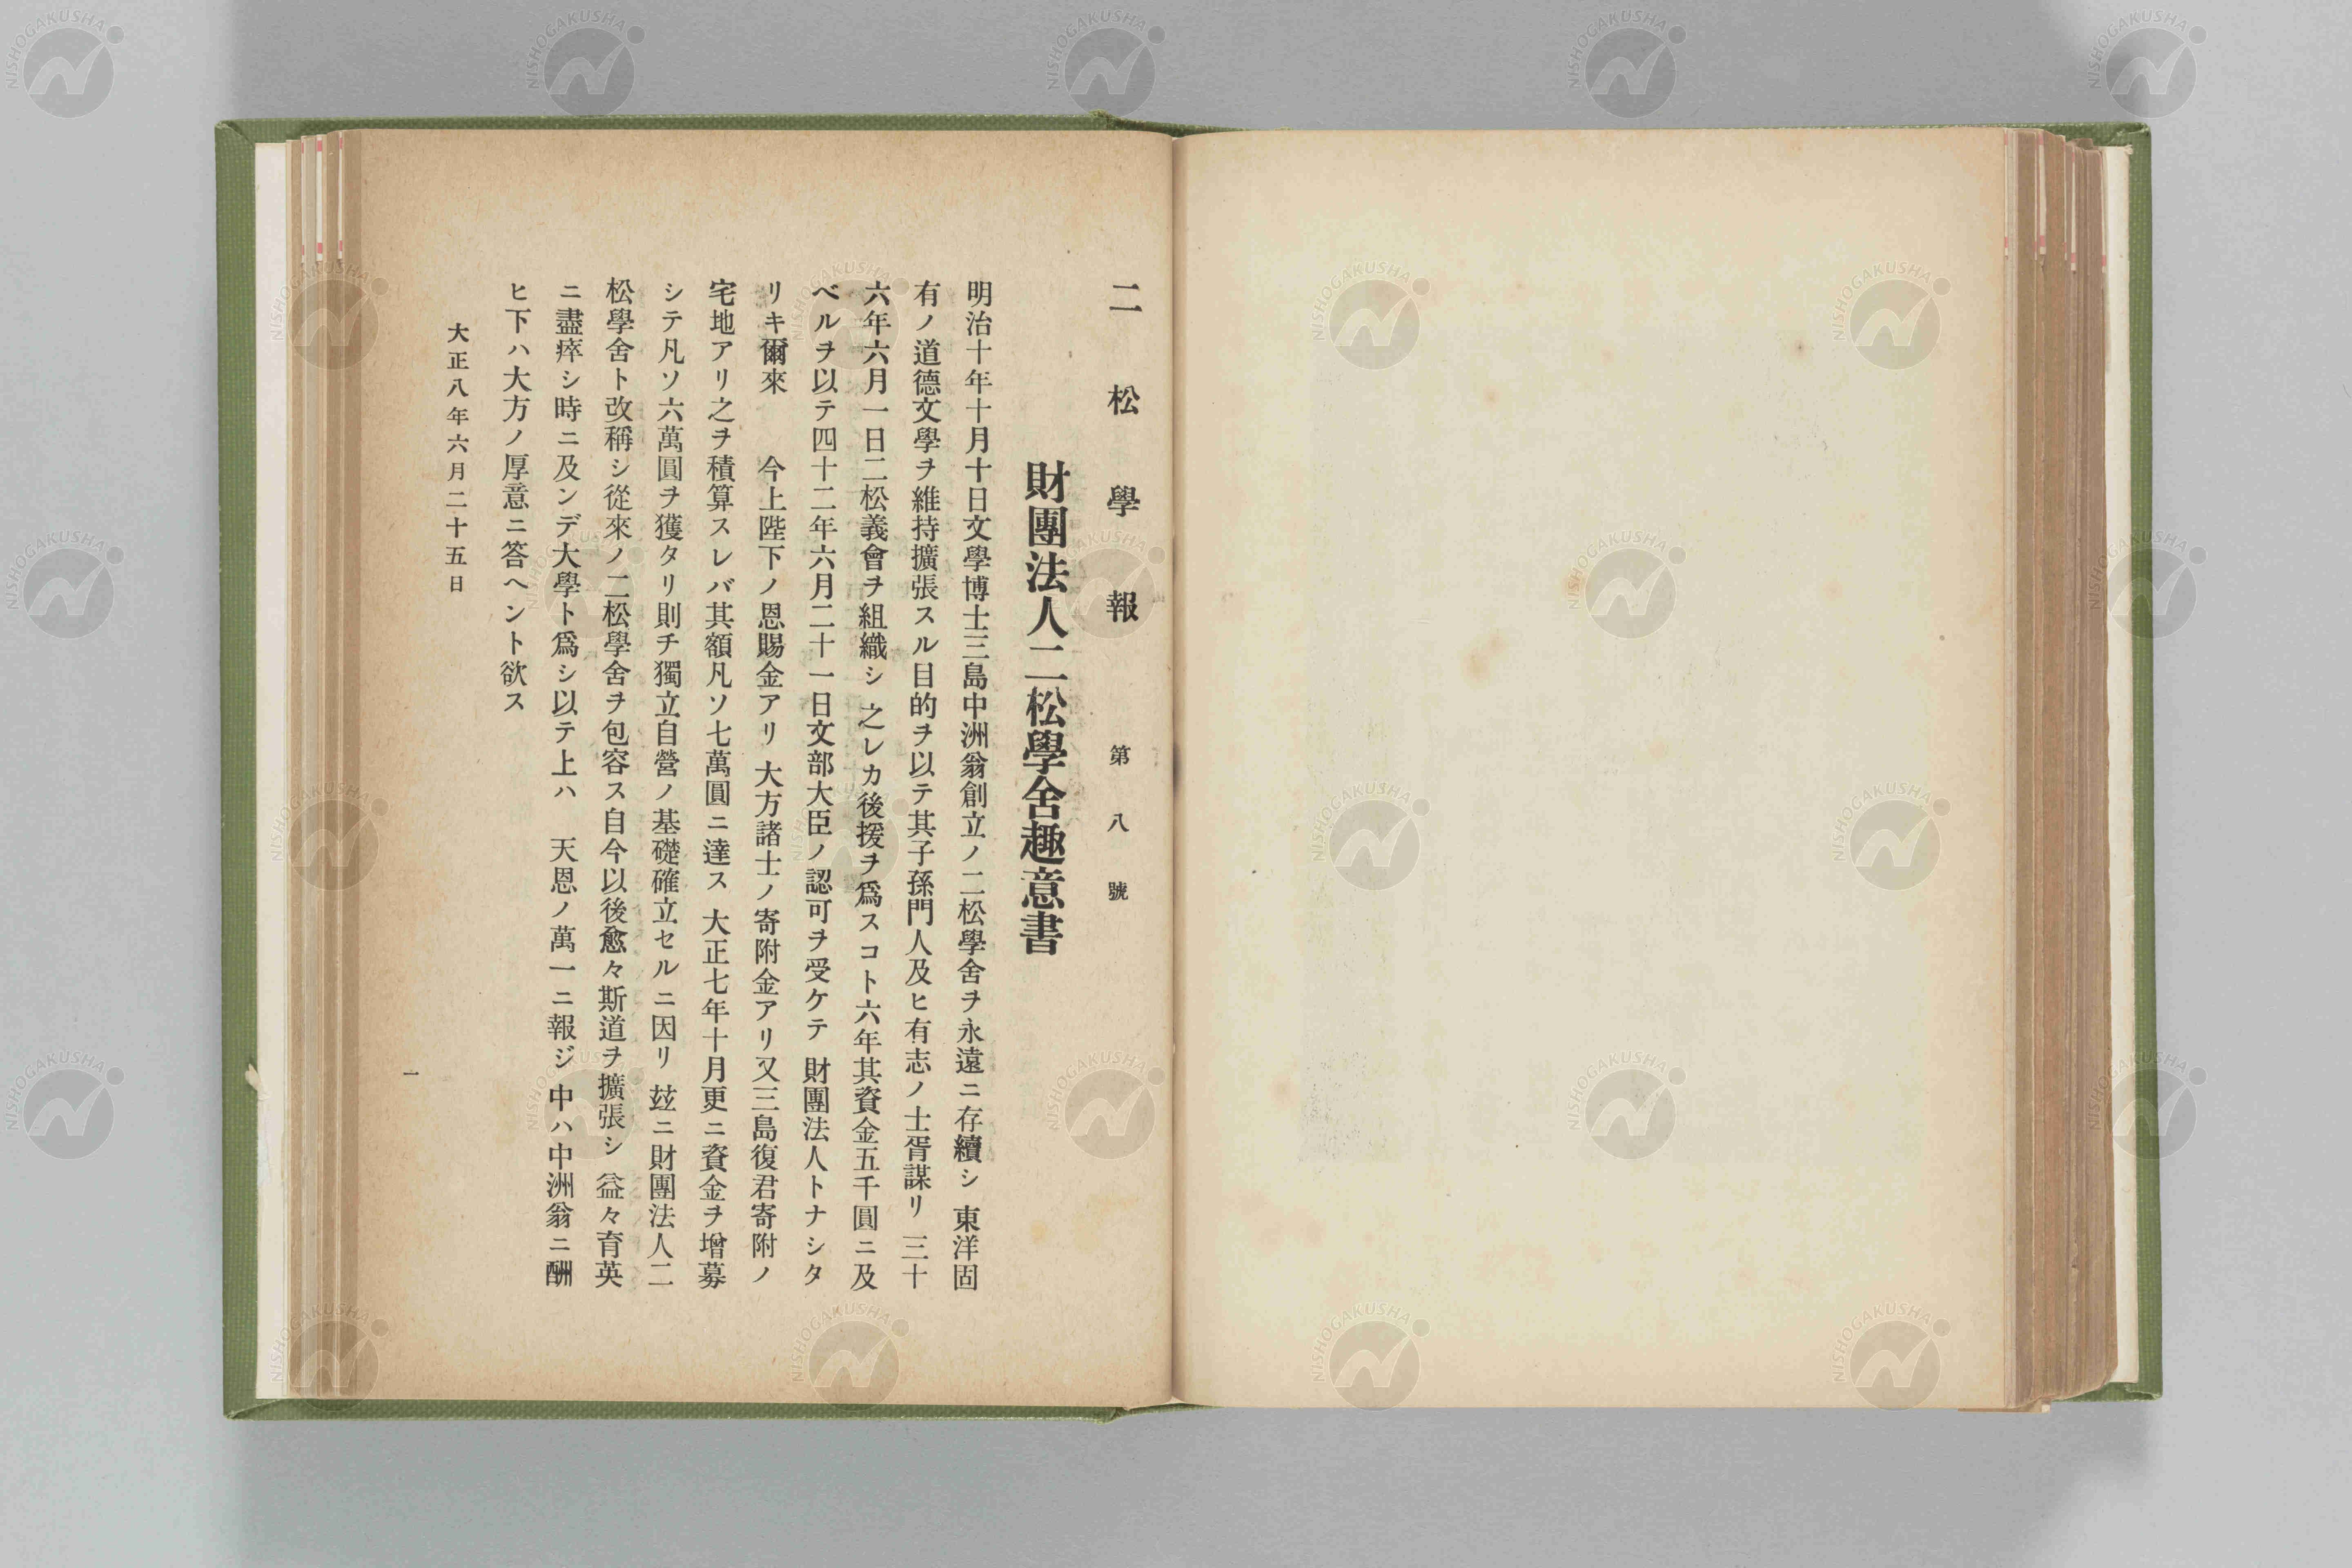 二松學報 第八號
財團法人二松學舍趣意書
明治十年十月十日文學博士三島中洲翁創立ノ二松學舍ヲ永遠ニ存續シ 東洋固
有ノ道德文學ヲ維持擴張スル目的ヲ以テ其子孫門人及ヒ有志ノ士胥謀リ 三十
六年六月一日二松義會ヲ組織シ 之レカ後援ヲ爲スコト六年其資金五千圓ニ及
ベルヲ以テ四十二年六月二十一日文部大臣ノ認可ヲ受ケテ 財團法人トナシタ
リキ爾來　　今上陛下ノ恩賜金アリ 大方諸士ノ寄附金アリ又三島復君寄附ノ
宅地アリ之ヲ積算スレバ其額凡ソ七萬圓ニ達ス 大正七年十月更ニ資金ヲ增募
シテ凡ソ六萬圓ヲ獲タリ則チ獨立自營ノ基礎確立セルニ因リ 玆ニ財團法人二
松學舍ト改稱シ從來ノ二松學舍ヲ包容ス自今以後愈々斯道ヲ擴張シ 益々育英
ニ盡瘁シ時ニ及ンデ大學ト爲シ以テ上ハ　天恩ノ萬一ニ報ジ 中ハ中洲翁ニ酬
ヒ下ハ大方ノ厚意ニ答ヘント欲ス
大正八年六月二十五日
一
NISHOGAKUSHA